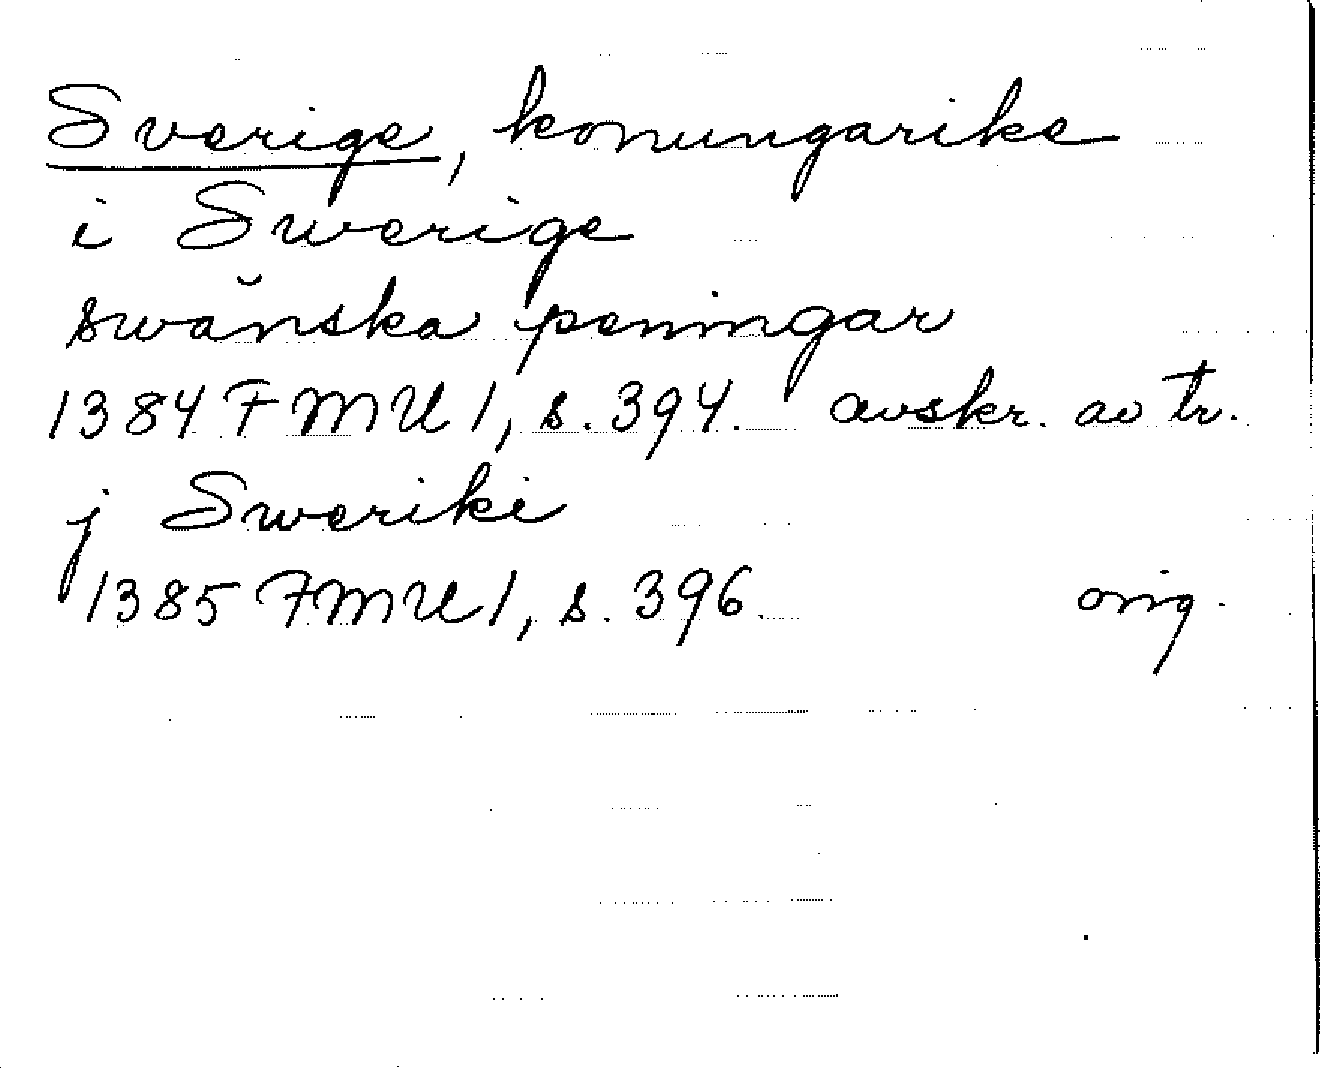 Sverige, konungarike
i Swerige
swănska peningar
1384 FMU 1, s. 394. avskr. av tr.
j Sweriki
1385 FMU 1, s. 396. orig.